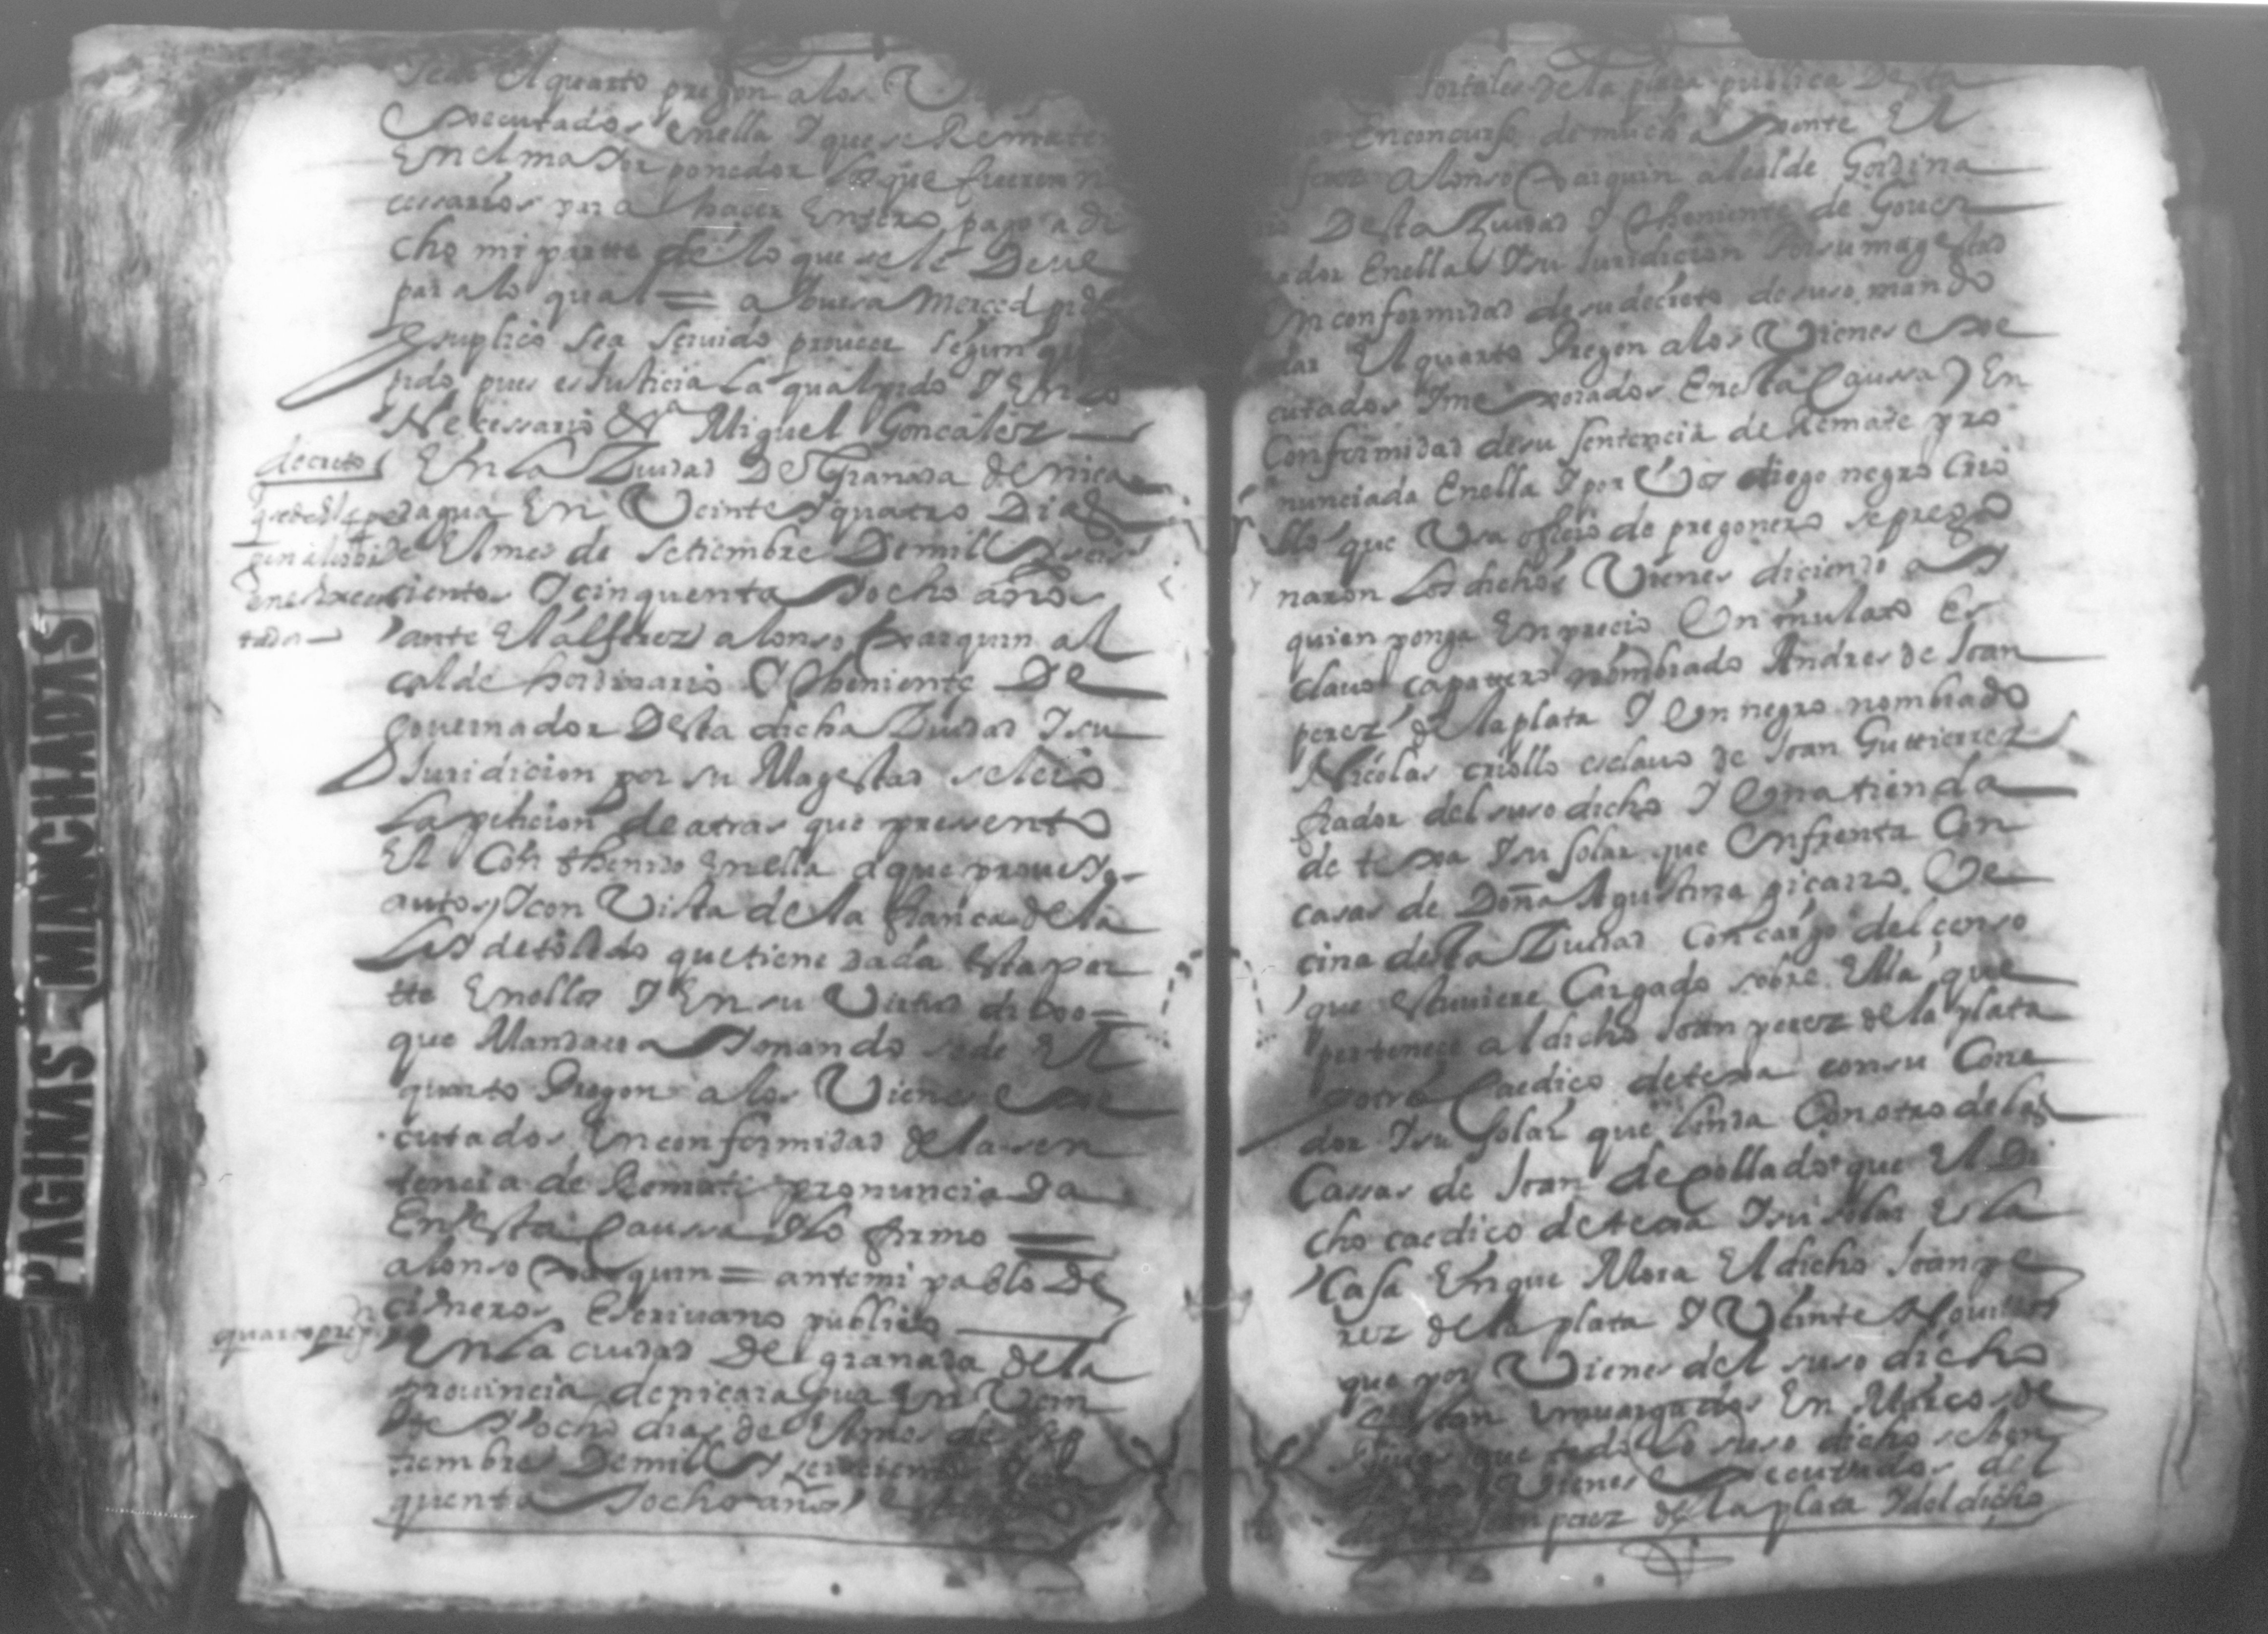 sean El quarto pregon a los
Executados enella Y que se Remate
En el maior ponedor los que fueren n
cessarios para hacer Entero pago a di
cho mi partte de lo que se le Deve
para lo qual = a Vuesa Merced pido
E suplico sea seruido proueer segun que
pido pues es Justicia la qual pido Y En lo
Necessario &ª Miguel Goncalez
decreto
En la Ziudad De Granada de nica
ragua En Veinte Y quatro Dias
de El mes de Setiembre De mill Y seis
cientos Y cinquenta Y ocho años
tados
ante El alferez alonso Xarquin al
calde hordinario Y Theniente De
Gouernador Desta dicha Ziudad Y su
Juridicion por su Magestad se leio
La peticion de atras que presento
El Conthenido Enella Y que prouei Yo
autos Y con Vista de la fianca de la
Lei de toledo que tiene dada Esta par
tte Enellos Y En su Virtud dixo =
que Mandaua Y mando se de El
quarto Pregon a los Vienes Exe
cutados En conformidad de la sen
tencia de Remate pronunciada
En Esta Caussa Y lo firmo =
alonso Xarquin = ante mi pablo De
cisneros Escriuano publico
quarto pregon
En la ciudad De granada de la
prouincia de nicaragua En Vein
te Y ocho dias de El mes de Sep
tiembre De mill Y seiscientos Y cin
quenta Y ocho años
Portales de la placa publica Desta
En concurso de mucha Xente El
ferez Alonso Xarquin alcalde Gordina
rio Desta Ziudad Y Theniente de Gouer
nador Enella Y su Juridicion Por su magestad
En conformidad de su decreto de suso mando
dar El quarto Pregon a los Vienes Exe
cutados Y mexorados En esta Caussa Y En
Conformidad de su sentencia de Remate pro
nunciada Enella Y por Voz de diego negro Crio
llo que Usa oficio de pregonero se prego
naron Los dichos Vienes diciendo ay
quien ponga En precio Un mulato Es
clauo capatero nombrado Andres de Joan
perez de la plata Y Un negro nombrado
Nicolas criollo esclauo de Joan Guttierrez
fiador del suso dicho Y Una tienda
de texa Y su solar que Enfrenta Con
casas de Doña Agustina picarro Ve
cina desta Ziudad Con cargo del censo
que estuuiere Cargado sobre Ella que
pertenece al dicho Joan perez de la plata
Y otro Caedico de texa con su Corre
dor Y su Solar que linda Con otro de las
Cassas de Joan de Collado que El Di
cho caedico de texa Y su solar Es la
Casa En que Mora El dicho Joan pe
rez de la plata Y Veinte Y
que por Vienes del suso dicho
Estan Enuargados En Marcos de
que todo lo suso dicho se ben
Vienes Executados del
Joan perez de la plata Y del dicho
PAGINAS MANCHADAS